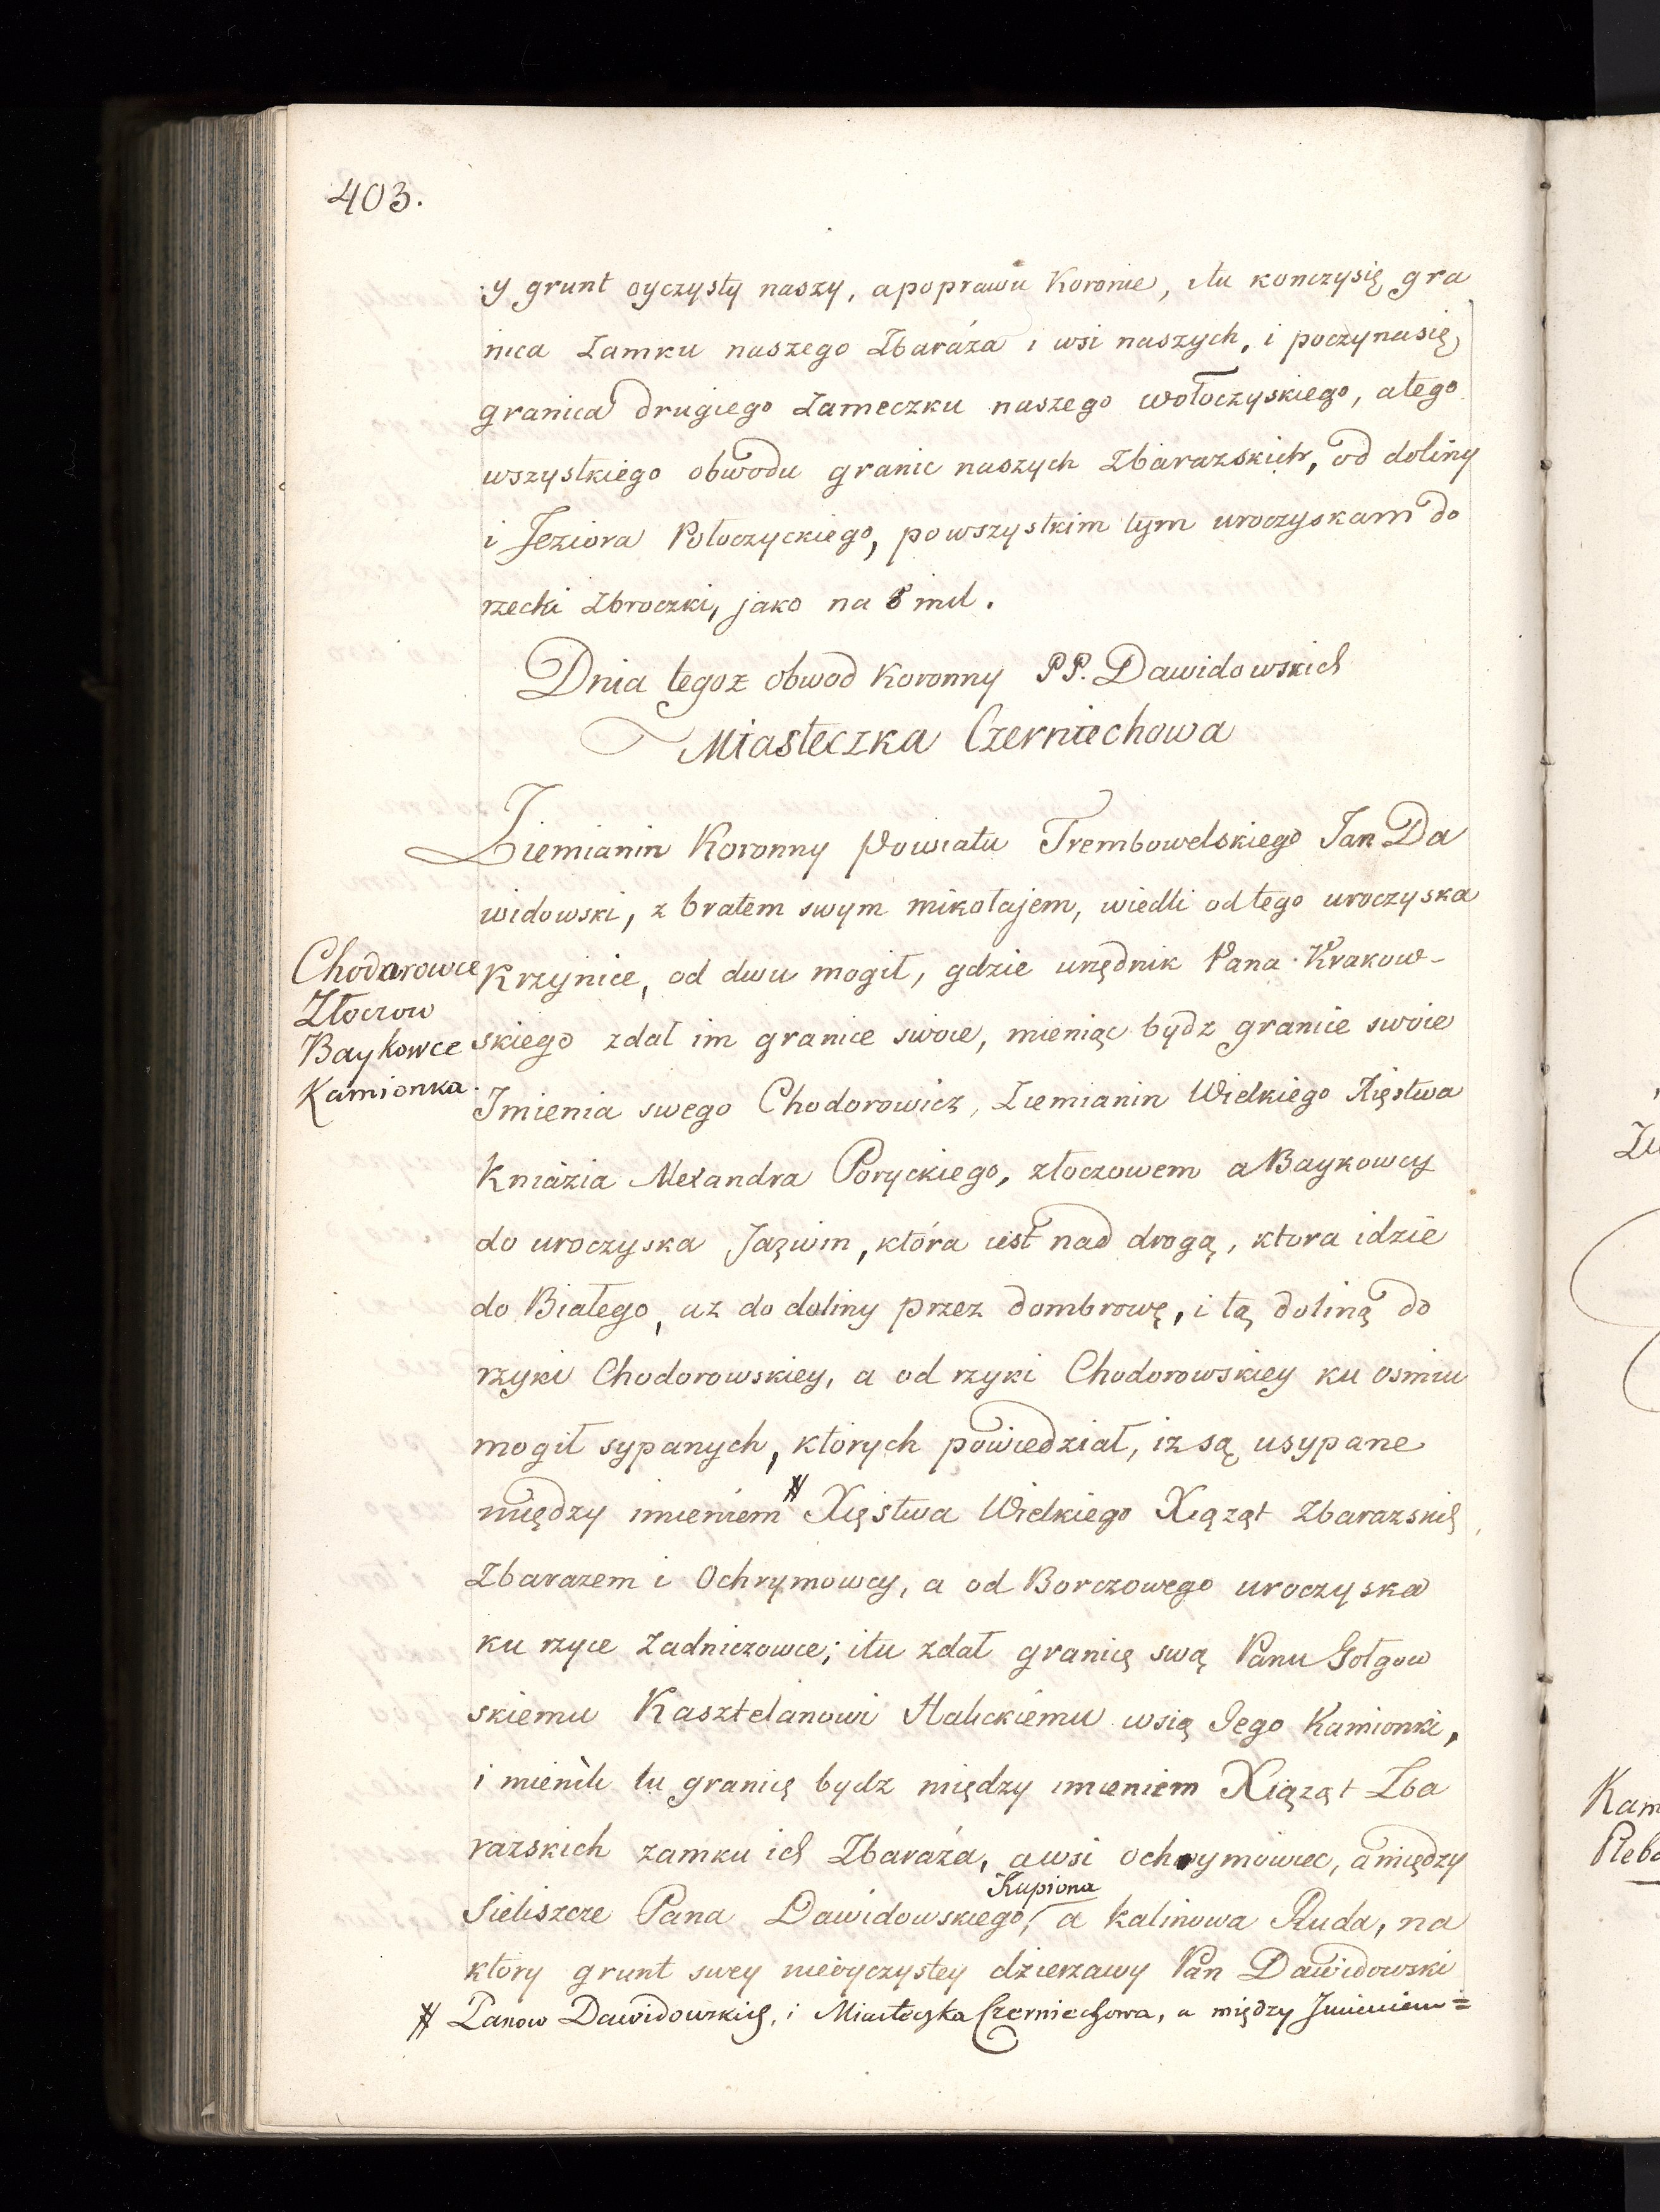 403.
y grunt oyczysty naszy, apoprawu Koronie, itu konczysię gra
nica Zamku naszego Zbaráża i wsi naszych, i poczynasię
granica drugiego Zameczku naszego wołoczyskiego, atego
wszystkiego obwodu granic naszych Zbarazskich, od doliny
i Jeziora Połoczyckiego, powszystkim tym uroczyskam do
rzecki Zbroczki, jako na 8 mil.
Dnia tegoz obwod Koronny PP. Dawidowskich
Miasteczka Czerniechowa
Ziemianin Koronny Powiatu Trembowelskiego Jan Da
widowski, z bratem swym mikołajem, wiedli odtego uroczyska
Krzynice, od dwu mogił, gdzie urzędnik Pana Krakow-
skiego zdał im granice swoie, mieniąc bydz granice swoie
Imienia swego Chodorowicz, Ziemianin Wielkiego Xięstwa
Kniázia Alexandra Poryckiego, złoczowem a Baykowcy
do uroczyska Jazwin, która iest nad drogą, ktora idzie
do Białego, az do doliny przez dombrowę, i tą doliną do
rzyki Chodorowskiey, a od rzyki Chodorowskiey ku osmiu
mogił sypanych, których powiedział, iz są usypane
między imieniem # Xięstwa Wielkiego Xiążąt Zbarazskich
Zbarazem i Ochrymowcy, a od Borczowego uroczyska
ku rzyce Zadniczowce; itu zdał granicę swą Panu Gołgow
skiemu Kasztelanowi Halickiemu wsią Jego Kamionki,
i mienili tu granicę bydz między imieniem Xiążąt Zba
razskich zamku ich Zbaráża, awsi ochrymowiec, amiędzy
Sieliszcze Pana Dawidowskiego, Kupiona a Kalinowa Ruda, na
który grunt swey nieoyczystey dzierzawy Pan Dawidowski
# Panow Dawidowskich, i Miasteczka Czerniechowa, a między Imieniem =
Chodorowce
Złoczow
Baykowce
Kamionka.